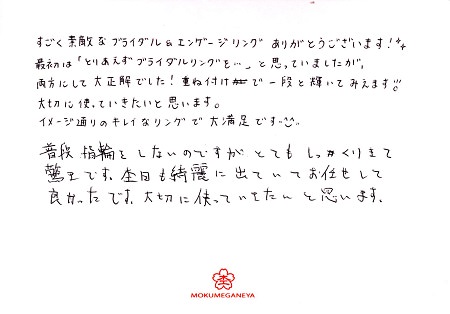 すごく素敵なブライダル&エンゲージリングありがとうございます!
最初は「とりあえずブライダルリングを…」と思っていましたが、
両方にして大正解でした!重ね付けで一段と輝いてみえます!!
大切に使っていきたいと思います。
イメージ通りのキレイなリングで大満足です
普段指輪をしないのですがとてもしっかりきて
驚きです。杢目も綺麗に出ていてお任せして
良かったです。大切に使っていきたいと思います。
MOKUMEGANEYA